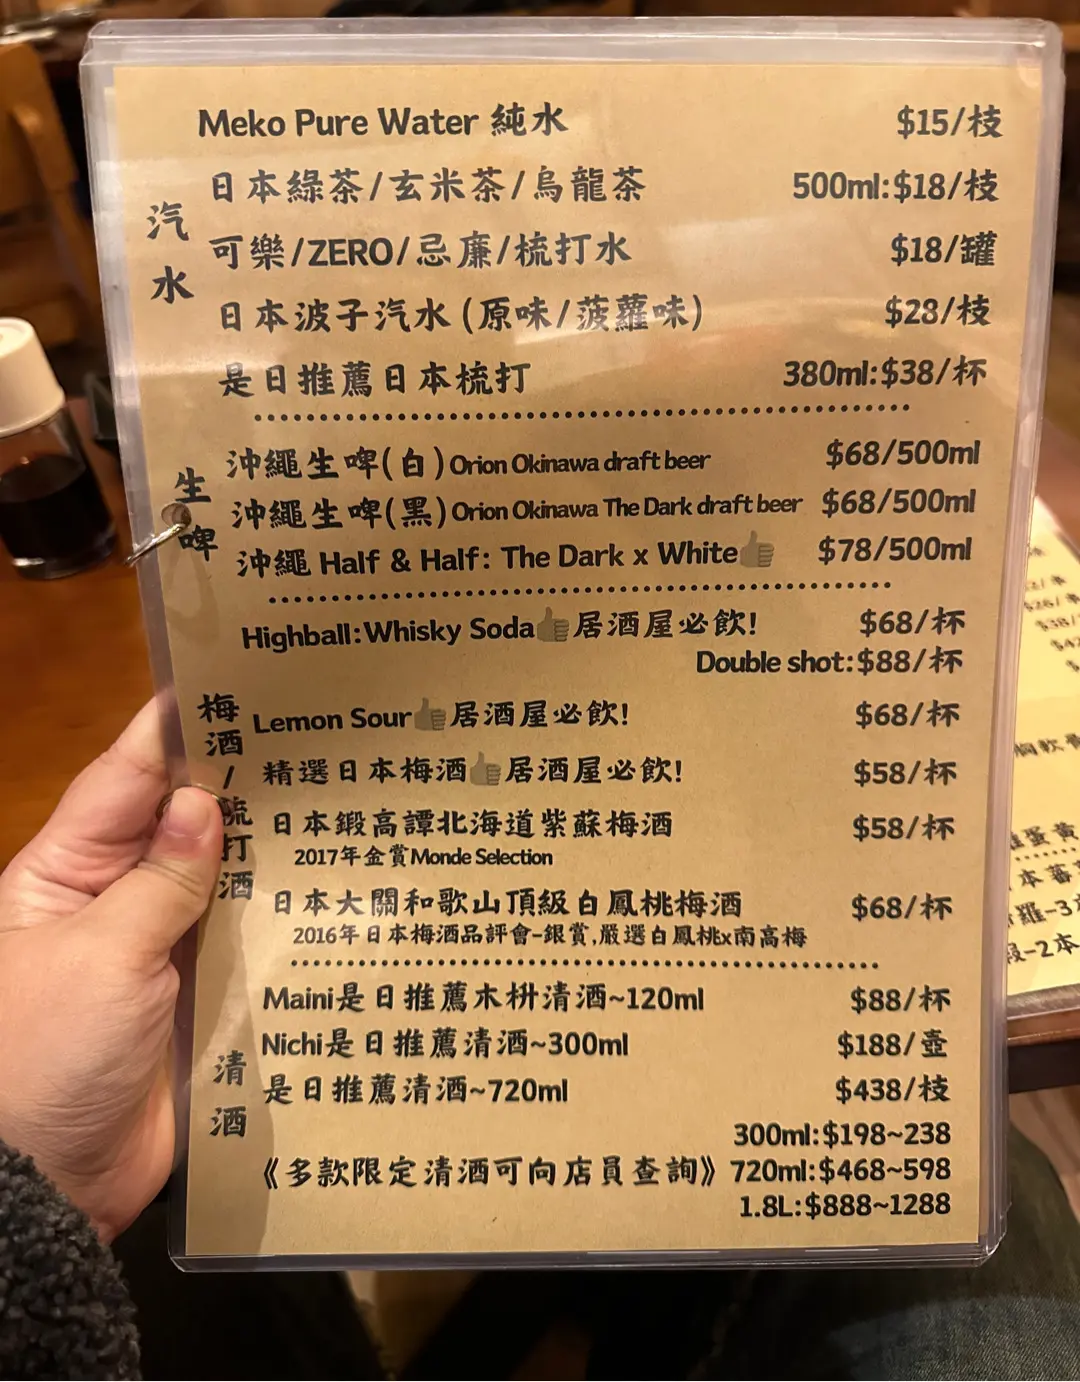 汽水
Meko Pure Water 純水 $15/枝
日本綠茶/玄米茶/烏龍茶 500ml:$18/枝
可樂/ZERO/忌廉/梳打水 $18/罐
日本波子汽水 (原味/菠蘿味) $28/枝
是日推薦日本梳打 380ml:$38/杯
生啤
沖繩生啤(白)Orion Okinawa draft beer $68/500ml
沖繩生啤(黑)Orion Okinawa The Dark draft beer $68/500ml
沖繩 Half & Half: The Dark x White👍 $78/500ml
梅酒/梳打酒
Highball:Whisky Soda👍居酒屋必飲! $68/杯
Double shot:$88/杯
Lemon Sour👍居酒屋必飲! $68/杯
精選日本梅酒👍居酒屋必飲! $58/杯
日本鍛高譚北海道紫蘇梅酒 $58/杯
2017年金賞Monde Selection
日本大關和歌山頂級白鳳桃梅酒 $68/杯
2016年日本梅酒品評會-銀賞,嚴選白鳳桃x南高梅
清酒
Maini是日推薦木枡清酒~120ml $88/杯
Nichi是日推薦清酒~300ml $188/壺
是日推薦清酒~720ml $438/枝
300ml:$198~238
《多款限定清酒可向店員查詢》 720ml:$468~598
1.8L:$888~1288